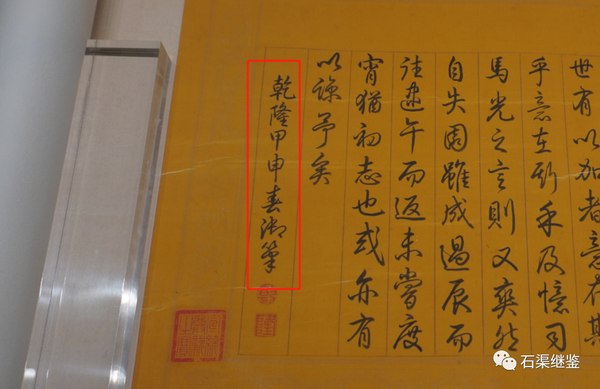 世有以加者意在其
乎意在斯乎及憶司
馬光之言則又爽然
自失園雖成過辰而
往逮午而返未嘗度
宵猶初志也或亦有
以諒予矣
乾隆甲申春御筆
石渠继鉴